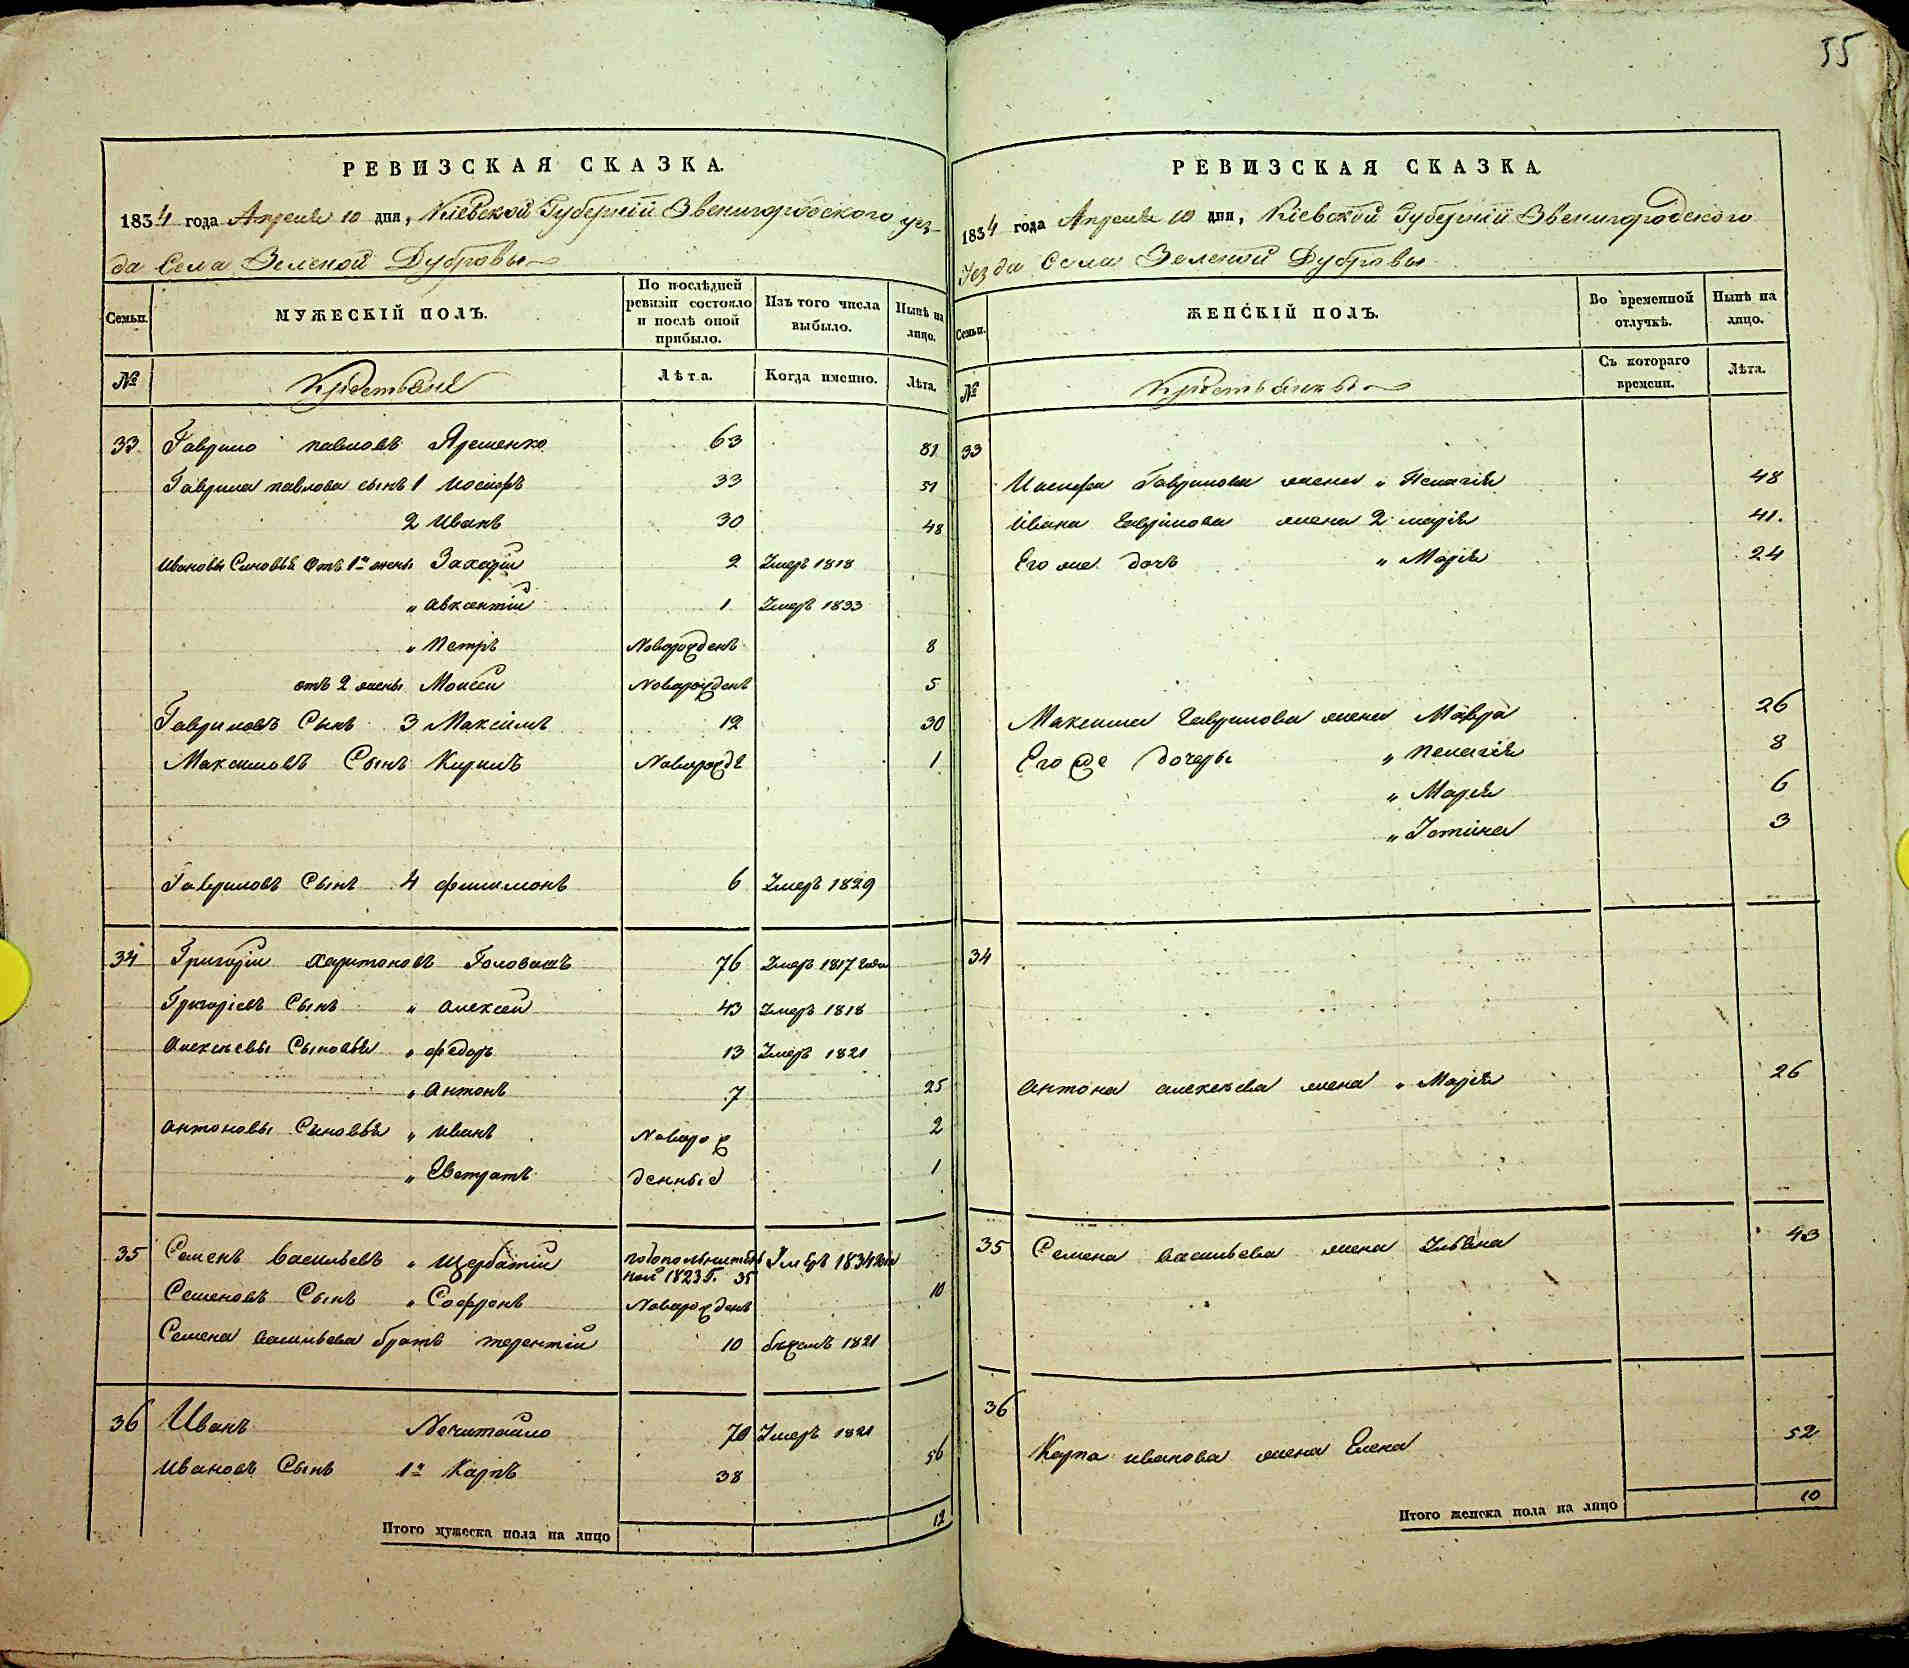 55
РЕВИЗСКАЯ СКАЗКА.
1834 года Апреля 10 дня, Кіевской Губерніи Звенигородского уез-
да Села Зеленой Дубровы
Семьи.
МУЖЕСКІЙ ПОЛЪ.
По послѣдней ревизіи состояло и послѣ оной прибыло.
Изъ того числа выбыло.
Нынѣ на лицо.
№
Крестьяне
Лѣта.
Когда именно.
Лѣта.
33 Гаврило павловъ Яременко 63 81
Гаврила павлова сынъ 1 иосифъ 33 51
2 Иванъ 30 48
Ивановы Сыновья отъ 1й жены Захарій 2 Умеръ 1818
„ авксентій 1 Умеръ 1833
„ Петръ Новорожденъ 8
отъ 2 жены Моисей Новорожденъ 5
Гавриловъ Сынъ 3 Максимъ 12 30
Максимовъ Сынъ Кирилъ Новорожде 1
Гавриловъ Сынъ 4 филимонъ 6 Умеръ 1829
34 Григорій харитоновъ Головашъ 76 Умеръ 1817 года
Григоріевъ Сынъ „ алексей 43 Умеръ 1818
алексѣевы Сыновья „ федоръ 13 Умеръ 1821
„ антонъ 7 25
антоновы Сыновья „ иванъ Новорож 2
„ Евстратъ денные 1
35 Семенъ васильевъ „ Щербатій по дополнитель Умеръ 1834 года
ной 1823 г. 35
Семеновъ Сынъ „ Софронъ Новорожденъ 10
Семена васильева братъ терентій 10 бежалъ 1821
36 Иванъ Нечитайло 70 Умеръ 1821
ивановъ Сынъ 1й Карпъ 38 56
Итого мужеска пола на лицо 12
РЕВИЗСКАЯ СКАЗКА.
1834 года Апреля 10 дня, Кіевской Губерніи Звенигородского
Уезда Села Зеленой Дубровы
Семьи.
ЖЕНСКІЙ ПОЛЪ.
Во временной отлучкѣ.
Нынѣ на лицо.
№
Крестьянки
Съ котораго времени.
Лѣта.
33
Иосифа Гаврилова жена „ Пелагія 48
ивана Гаврилова жена 2 марія 41.
Его же дочь „ Марія 24
Максима Гаврилова жена Мавра 26
Его же дочеры „ пелагія 8
„ Марія 6
„ Устина 3
34
антона алексѣева жена „ Марія 26
35 Семена васильева жена Ульяна 43
36
Карпа иванова жена Елена 52
Итого женска пола на лицо 10